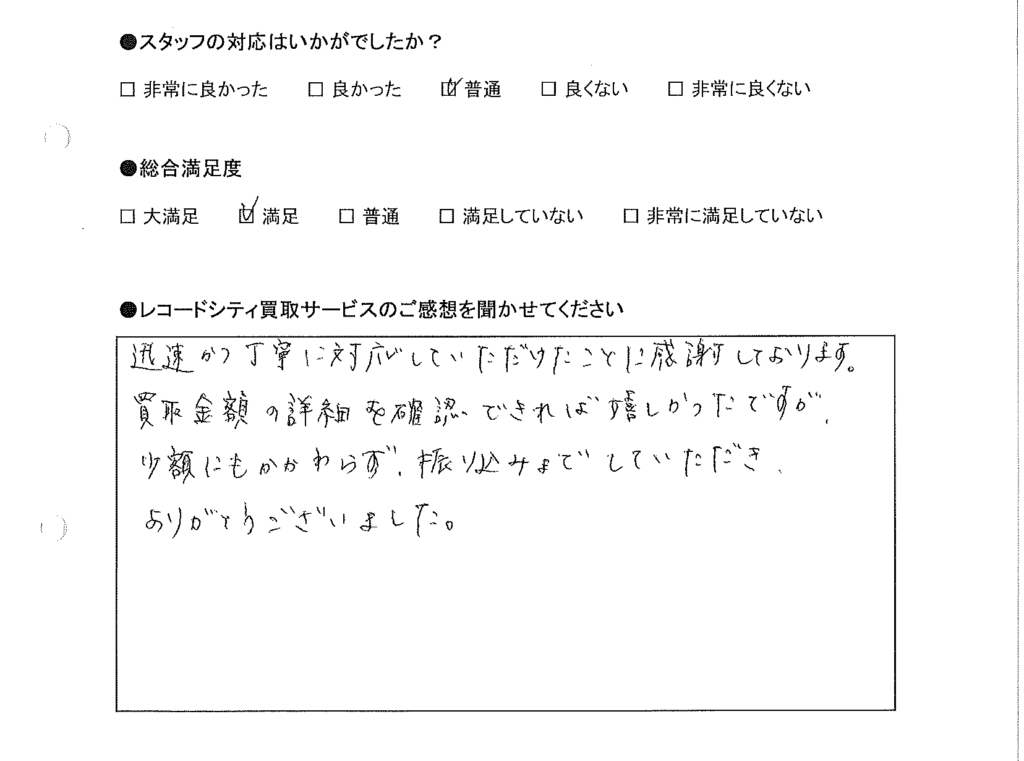 ●スタッフの対応はいかがでしたか？
□ 非常に良かった □ 良かった ☑ 普通 □ 良くない □ 非常に良くない
●総合満足度
□ 大満足 ☑ 満足 □ 普通 □ 満足していない □ 非常に満足していない
●レコードシティ買取サービスのご感想を聞かせてください
迅速かつ丁寧に対応していただけたことに感謝しております。
買取金額の詳細を確認できれば嬉しかったですが、
少額にもかかわらず、振り込みまでしていただき、
ありがとうございました。